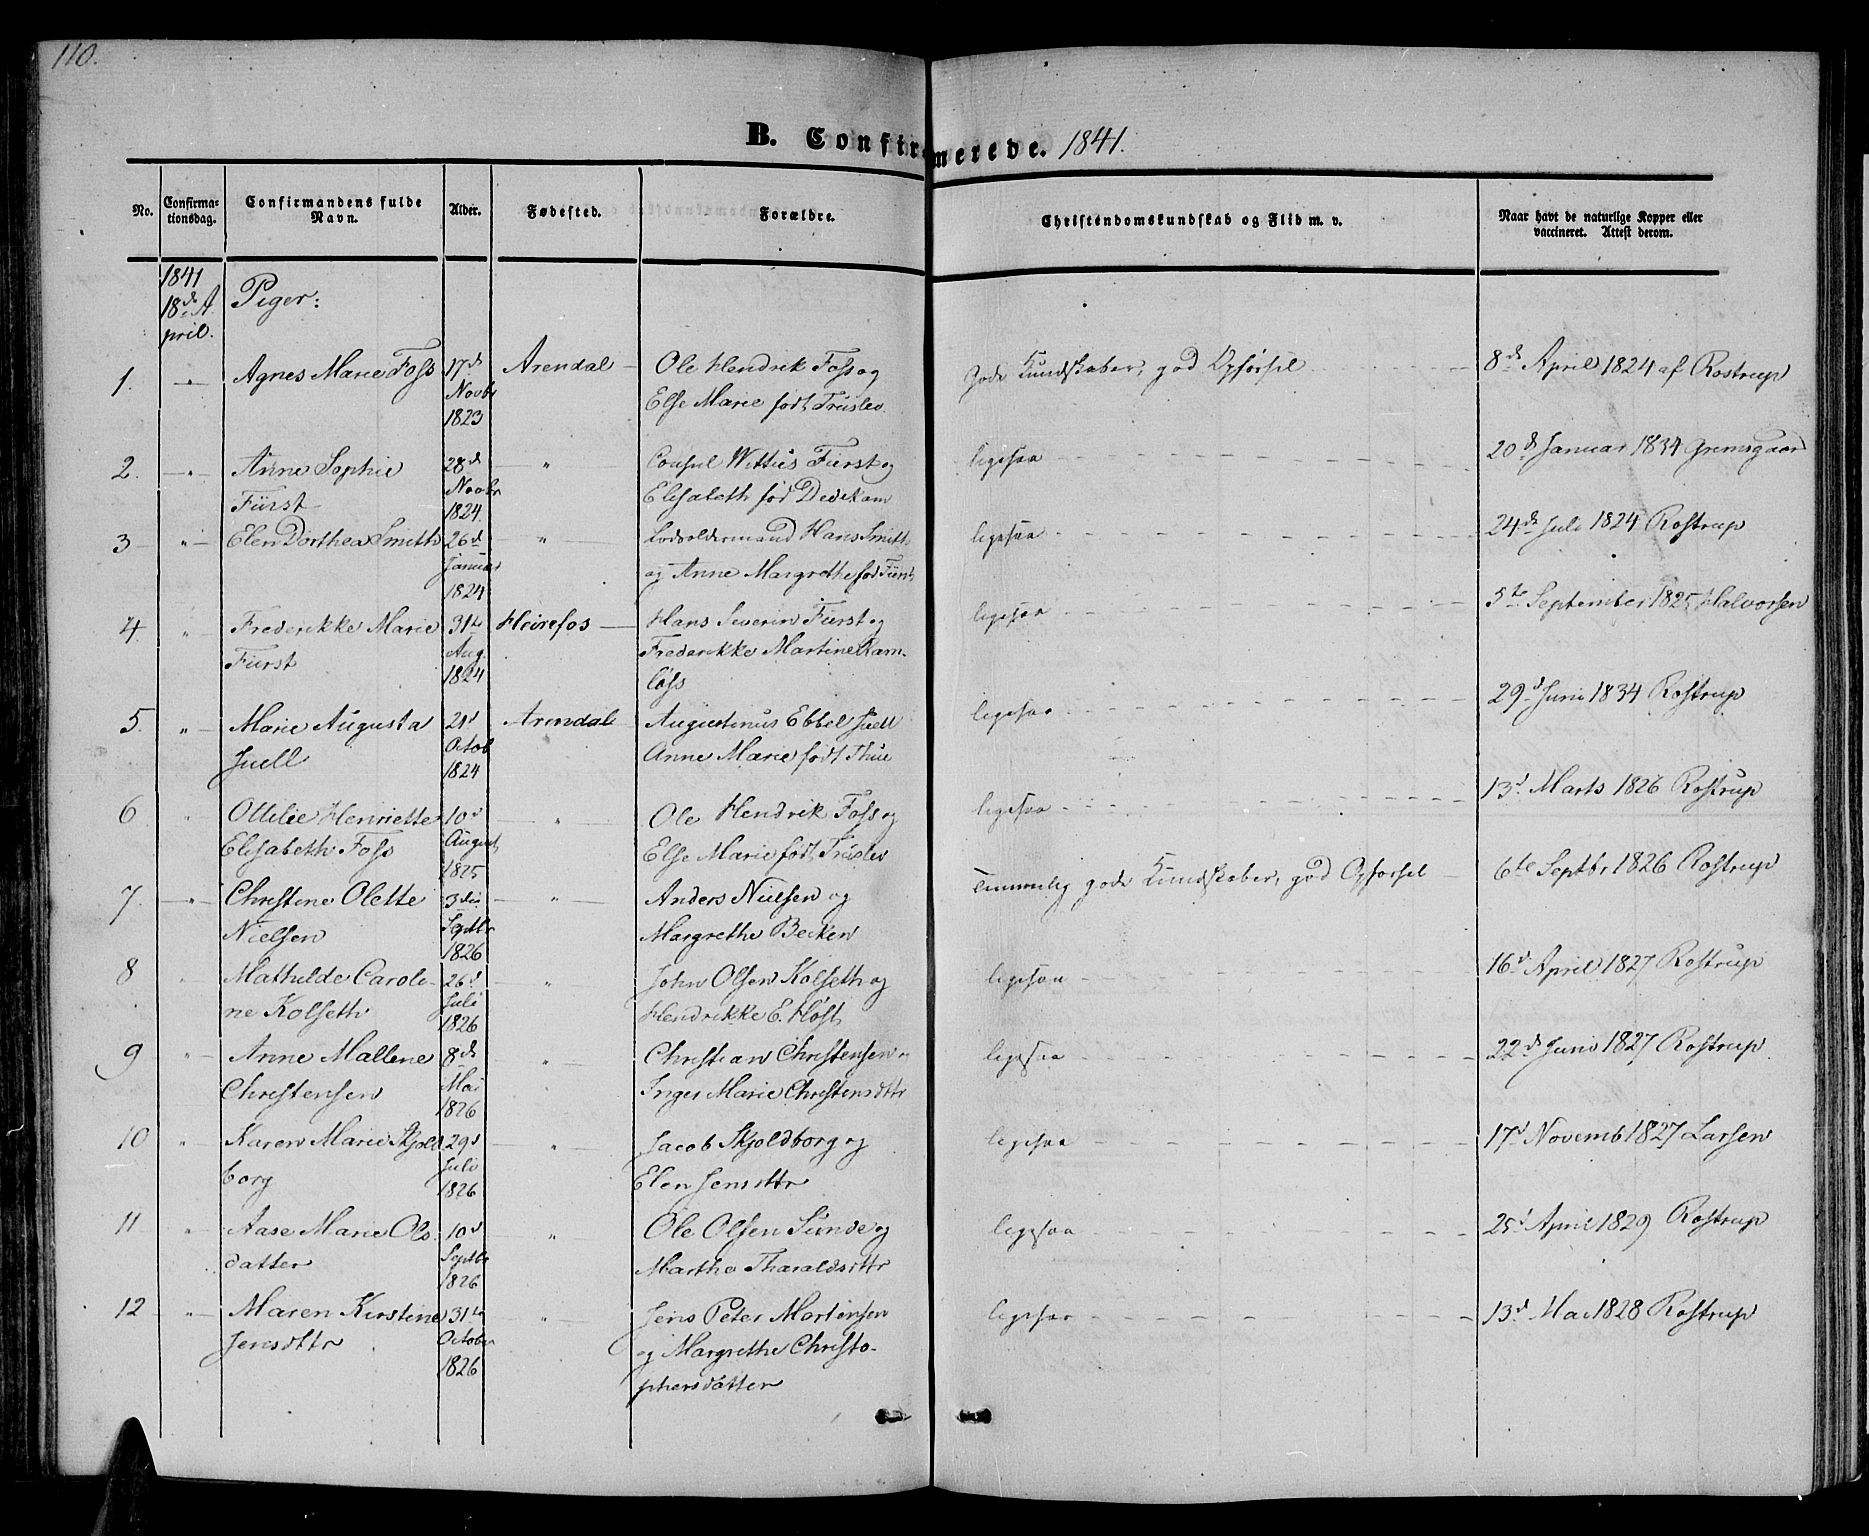 110.
B. Confirmerede. 1841.
No.
Confirma-
tionsdag.
Confirmandens fulde
Navn.
Alder.
Fødested.
Forældre.
Christendomskundskab og Flid m. v.
Naar havt de naturlige Kopper eller
vaccineret. Attest derom.
1841
18de A
pril.
Piger:
1. " Agnes Marie Foss 17d Arendal Ole Hendrik Foss og Gode Kundskaber, god Opførsel 8d April 1824 af Rostrup
Novbr
1823 Else Marie født Truslev
2. " Anne Sophie 28d " Consul Wittus Fürst og ligesaa 20d Januar 1834 Grensgaard
Fürst Novbr Elisabeth fød Dedekam
1824.
3 " Elen Dorthea Smith 26d " Hans Smith ligesaa 24d Juli 1824 Rostrup
Januar og Anne Margrethe fød Fürst
1824
4 " Frederikke Marie 31te Heirefos Hans Severin Fürst og ligesaa 5te September 1825 Halvorsen
Fürst Aug. Frederikke Martine Ram-
1824 løss
5. " Marie Augusta 21d Arendal Augustinus Ebbel Juell ligesaa 29d Juni 1834 Rostrup
Juell Octob " Anne Marie født Thue
1824
6 " Ottilie Henriette 10d " Ole Hendrik Foss og ligesaa 13d Marts 1826 Rostrup
Elisabeth Foss August Else Marie født Truslev
1825
7. " Christine Olette 3die " Anders Nielsen og Temmelig gode Kundskaber, god Opførsel 6te Septbr 1826 Rostrup
Nielsen Septbr Margrethe Becken
1826
8 " Mathilde Caroli- 26d " John Olsen Kolseth og ligesaa 16d April 1827 Rostrup
ne Kolseth Juli Hendrikke E. Høst
1826
9 " Anne Mallene 8de " Christian Christensen o ligesaa 22d Juni 1827 Rostrup.
Christensen Mai Inger Marie Christensdttr
1826
10 " Karen Marie Skjold 29d " Jacob Skjoldborg og ligesaa 17d Novemb 1827 Larsen
borg Juli Elen Jensdttr
1826
11 " Aase Marie Ols- 10d " Ole Olsen Sunde og ligesaa 25d April 1829 Rostrup
datter Septbr Marthe Tharaldsdttr
1826
12 " Maren Kirstine 31te " Jens Peter Mortensen ligesaa 13d Mai 1828 Rostrup
Jensdttr October og Margrethe Christo-
1826 phersdatter